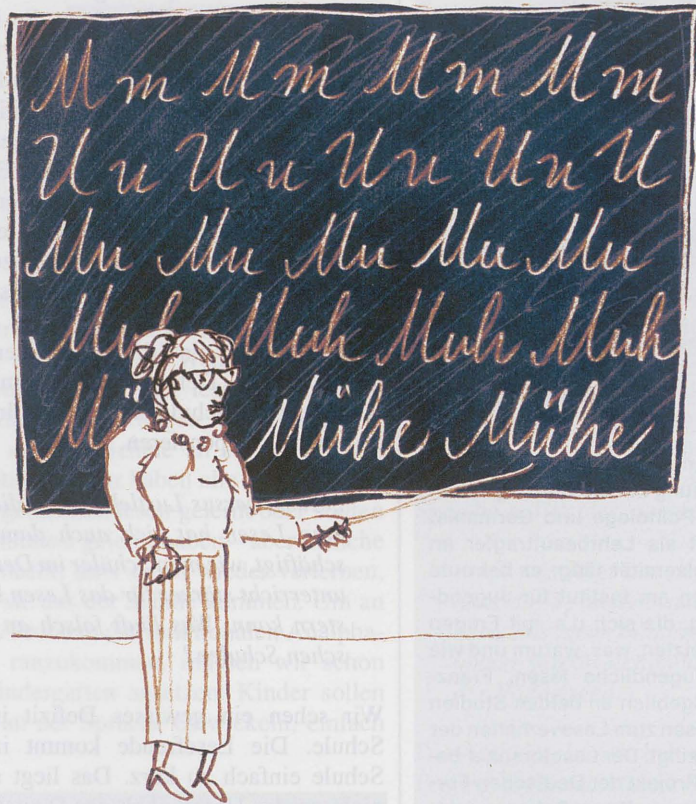 Mm Mm Mm Mm
Uu Uu Uu Uu U
Mu Mu Mu Mu Mu
Muh Muh Muh Muh
Mühe Mühe